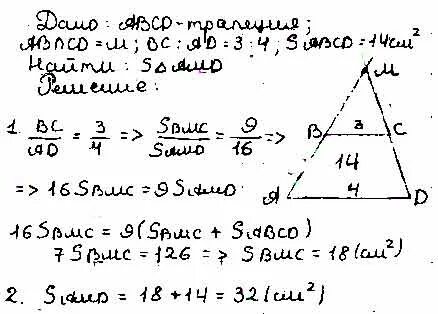 Дано: ABCD-трапеция;
AB∩CD = M; BC : AD = 3 : 4; SABCD = 14 см²
Найти: SΔAMD
Решение:
1. BC/AD = 3/4 => SBMC/SAMD = 9/16 =>
=> 16SBMC = 9SAMD
16SBMC = 9(SBMC + SABCD)
7SBMC = 126 => SBMC = 18 (см²)
2. SAMD = 18 + 14 = 32 (см²)
M
B 3 C
14
A 4 D